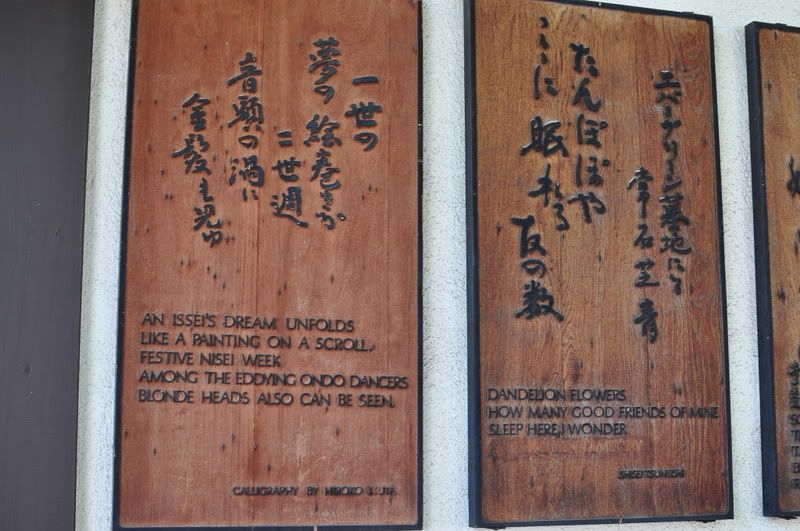 一世の
夢の絵巻きか
二世週
音頭の渦に
金髪も見ゆ
AN ISSEI'S DREAM UNFOLDS
LIKE A PAINTING ON A SCROLL,
FESTIVE NISEI WEEK
AMONG THE EDDYING ONDO DANCERS
BLONDE HEADS ALSO CAN BE SEEN.
CALLIGRAPHY BY HIROKO IKUTA
エバーグリーン墓地にて
常石芝青
たんぽぽや
ここに眠れる
友の数
DANDELION FLOWERS
HOW MANY GOOD FRIENDS OF MINE
SLEEP HERE, I WONDER
SHISEI TSUNEISHI